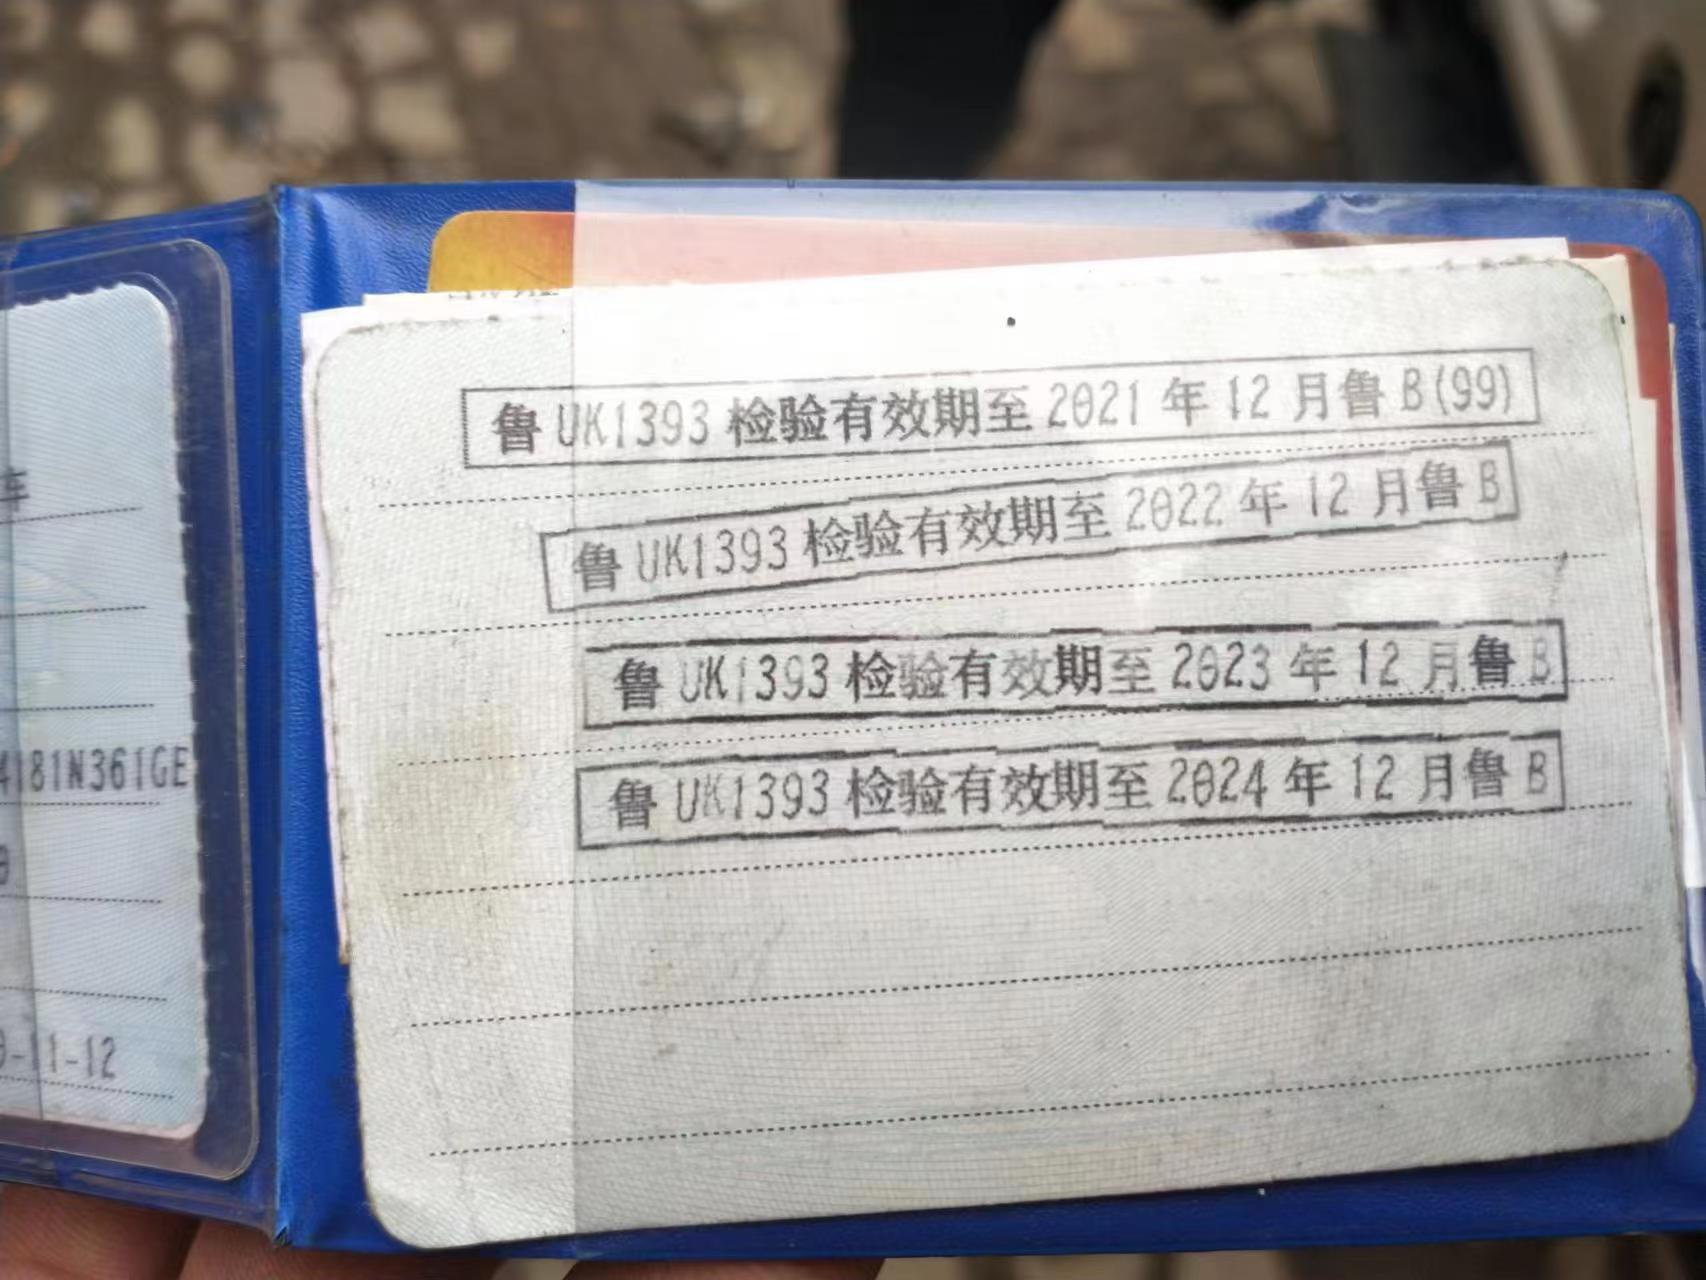 车
4181N361GE
-11-12
鲁 UK1393 检验有效期至 2021 年 12 月鲁 B(99)
鲁 UK1393 检验有效期至 2022 年 12 月鲁 B
鲁 UK1393 检验有效期至 2023 年 12 月鲁 B
鲁 UK1393 检验有效期至 2024 年 12 月鲁 B